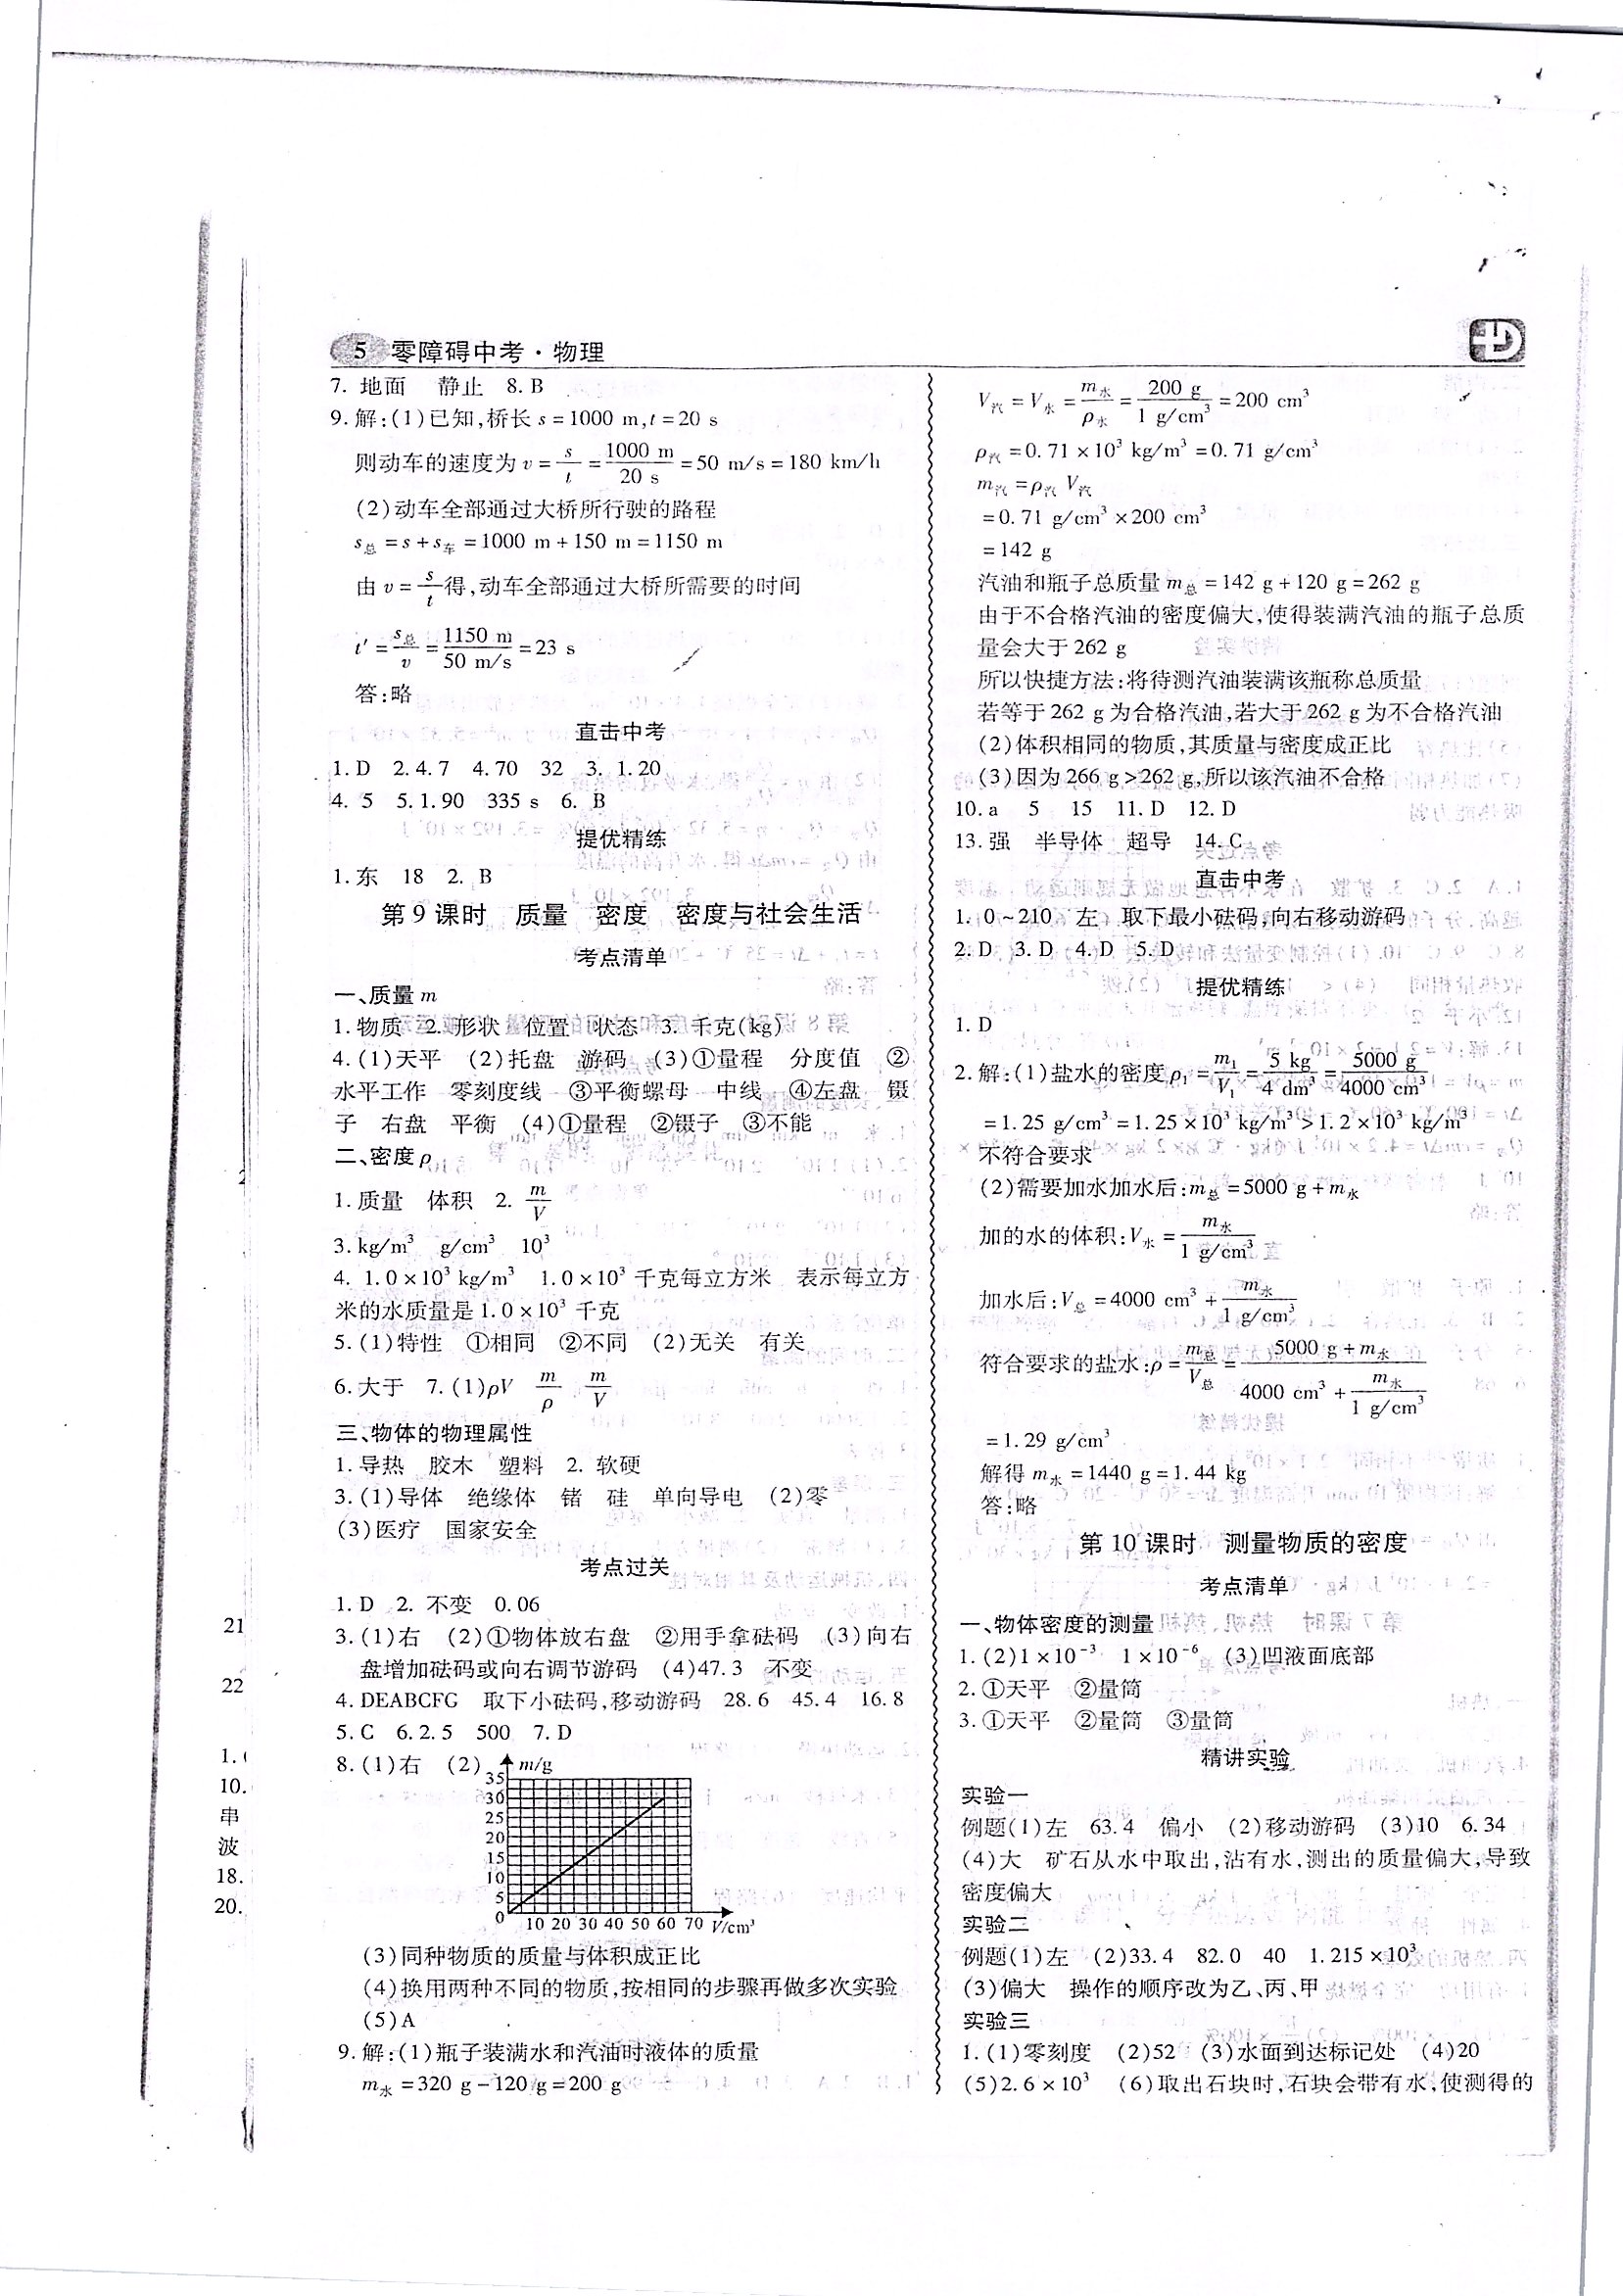 5 零障碍中考·物理
7. 地面 静止 8. B
9. 解:(1)已知,桥长 s=1000 m,t=20 s
则动车的速度为 v=s/t=1000 m/20 s=50 m/s=180 km/h
(2)动车全部通过大桥所行驶的路程
s总=s+s车=1000 m+150 m=1150 m
由 v=s/t得,动车全部通过大桥所需要的时间
t′=s总/v=1150 m/50 m/s=23 s
答:略
直击中考
1. D 2. 4.7 4.70 32 3. 1.20
4. 5 5. 1.90 335 s 6. B
提优精练
1. 东 18 2. B
第 9 课时 质量 密度 密度与社会生活
考点清单
一、质量 m
1. 物质 2. 形状 位置 状态 3. 千克(kg)
4. (1)天平 (2)托盘 游码 (3)①量程 分度值 ②
水平工作 零刻度线 ③平衡螺母 中线 ④左盘 镊
子 右盘 平衡 (4)①量程 ②镊子 ③不能
二、密度 ρ
1. 质量 体积 2. m/V
3. kg/m³ g/cm³ 10³
4. 1.0×10³ kg/m³ 1.0×10³ 千克每立方米 表示每立方
米的水质量是 1.0×10³ 千克
5. (1)特性 ①相同 ②不同 (2)无关 有关
6. 大于 7. (1)ρV m/ρ m/V
三、物体的物理属性
1. 导热 胶木 塑料 2. 软硬
3. (1)导体 绝缘体 锗 硅 单向导电 (2)零
(3)医疗 国家安全
考点过关
1. D 2. 不变 0.06
3. (1)右 (2)①物体放右盘 ②用手拿砝码 (3)向右
盘增加砝码或向右调节游码 (4)47.3 不变
4. DEABCFG 取下小砝码,移动游码 28.6 45.4 16.8
5. C 6. 2.5 500 7. D
8. (1)右 (2)
m/g
35
30
25
20
15
10
5
0
10 20 30 40 50 60 70 V/cm³
(3)同种物质的质量与体积成正比
(4)换用两种不同的物质,按相同的步骤再做多次实验
(5)A
9. 解:(1)瓶子装满水和汽油时液体的质量
m水=320 g−120 g=200 g
V汽=V水=m水/ρ水=200 g/1 g/cm³=200 cm³
ρ汽=0.71×10³ kg/m³=0.71 g/cm³
m汽=ρ汽V汽
=0.71 g/cm³×200 cm³
=142 g
汽油和瓶子总质量 m总=142 g+120 g=262 g
由于不合格汽油的密度偏大,使得装满汽油的瓶子总质
量会大于 262 g
所以快捷方法:将待测汽油装满该瓶称总质量
若等于 262 g 为合格汽油,若大于 262 g 为不合格汽油
(2)体积相同的物质,其质量与密度成正比
(3)因为 266 g>262 g,所以该汽油不合格
10. a 5 15 11. D 12. D
13. 强 半导体 超导 14. C
直击中考
1. 0~210 左 取下最小砝码,向右移动游码
2. D 3. D 4. D 5. D
提优精练
1. D
2. 解:(1)盐水的密度 ρ₁=m₁/V₁=5 kg/4 dm³=5000 g/4000 cm³
=1.25 g/cm³=1.25×10³ kg/m³>1.2×10³ kg/m³
不符合要求
(2)需要加水加水后:m总=5000 g+m水
加的水的体积:V水=m水/1 g/cm³
加水后:V总=4000 cm³+m水/1 g/cm³
符合要求的盐水:ρ=m总/V总=(5000 g+m水)/(4000 cm³+m水/1 g/cm³)
=1.29 g/cm³
解得 m水=1440 g=1.44 kg
答:略
第 10 课时 测量物质的密度
考点清单
一、物体密度的测量
1. (2)1×10⁻³ 1×10⁻⁶ (3)凹液面底部
2. ①天平 ②量筒
3. ①天平 ②量筒 ③量筒
精讲实验
实验一
例题(1)左 63.4 偏小 (2)移动游码 (3)10 6.34
(4)大 矿石从水中取出,沾有水,测出的质量偏大,导致
密度偏大
实验二
例题(1)左 (2)33.4 82.0 40 1.215×10³
(3)偏大 操作的顺序改为乙、丙、甲
实验三
1. (1)零刻度 (2)52 (3)水面到达标记处 (4)20
(5)2.6×10³ (6)取出石块时,石块会带有水,使测得的
21
22
1.
10.
串
波
18.
20.